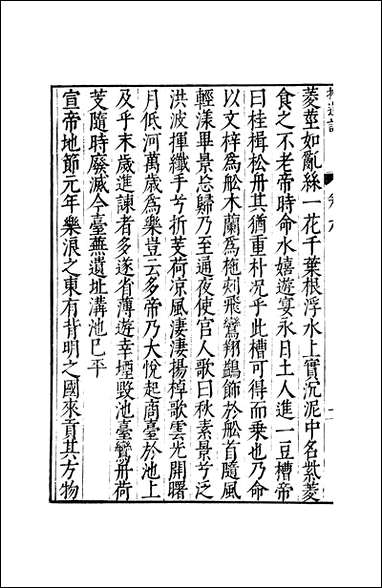 菱莖如亂絲一花千葉根浮水上實沉泥中名紫菱
食之不老帝時命水嬉遊宴永日土人進一豆槽帝
曰桂楫松舟其猶重朴況乎此槽可得而乗也乃命
以文梓爲舩木蘭爲柂刻飛鸞翔鷁飾於舩首隨風
輕漾畢景忘歸乃至通夜使宫人歌曰秋素景兮泛
洪波揮纖手兮折芰荷凉風淒淒揚棹歌雲光開曙
月低河萬歳爲樂豈云多帝乃大悅起商臺於池上
及乎末歳進諫者多遂省薄遊幸堙毁池臺鸞舟荷
芰隨時廢滅今臺無遺址溝池已平
宣帝地節元年樂浪之東有背明之國來貢其方物